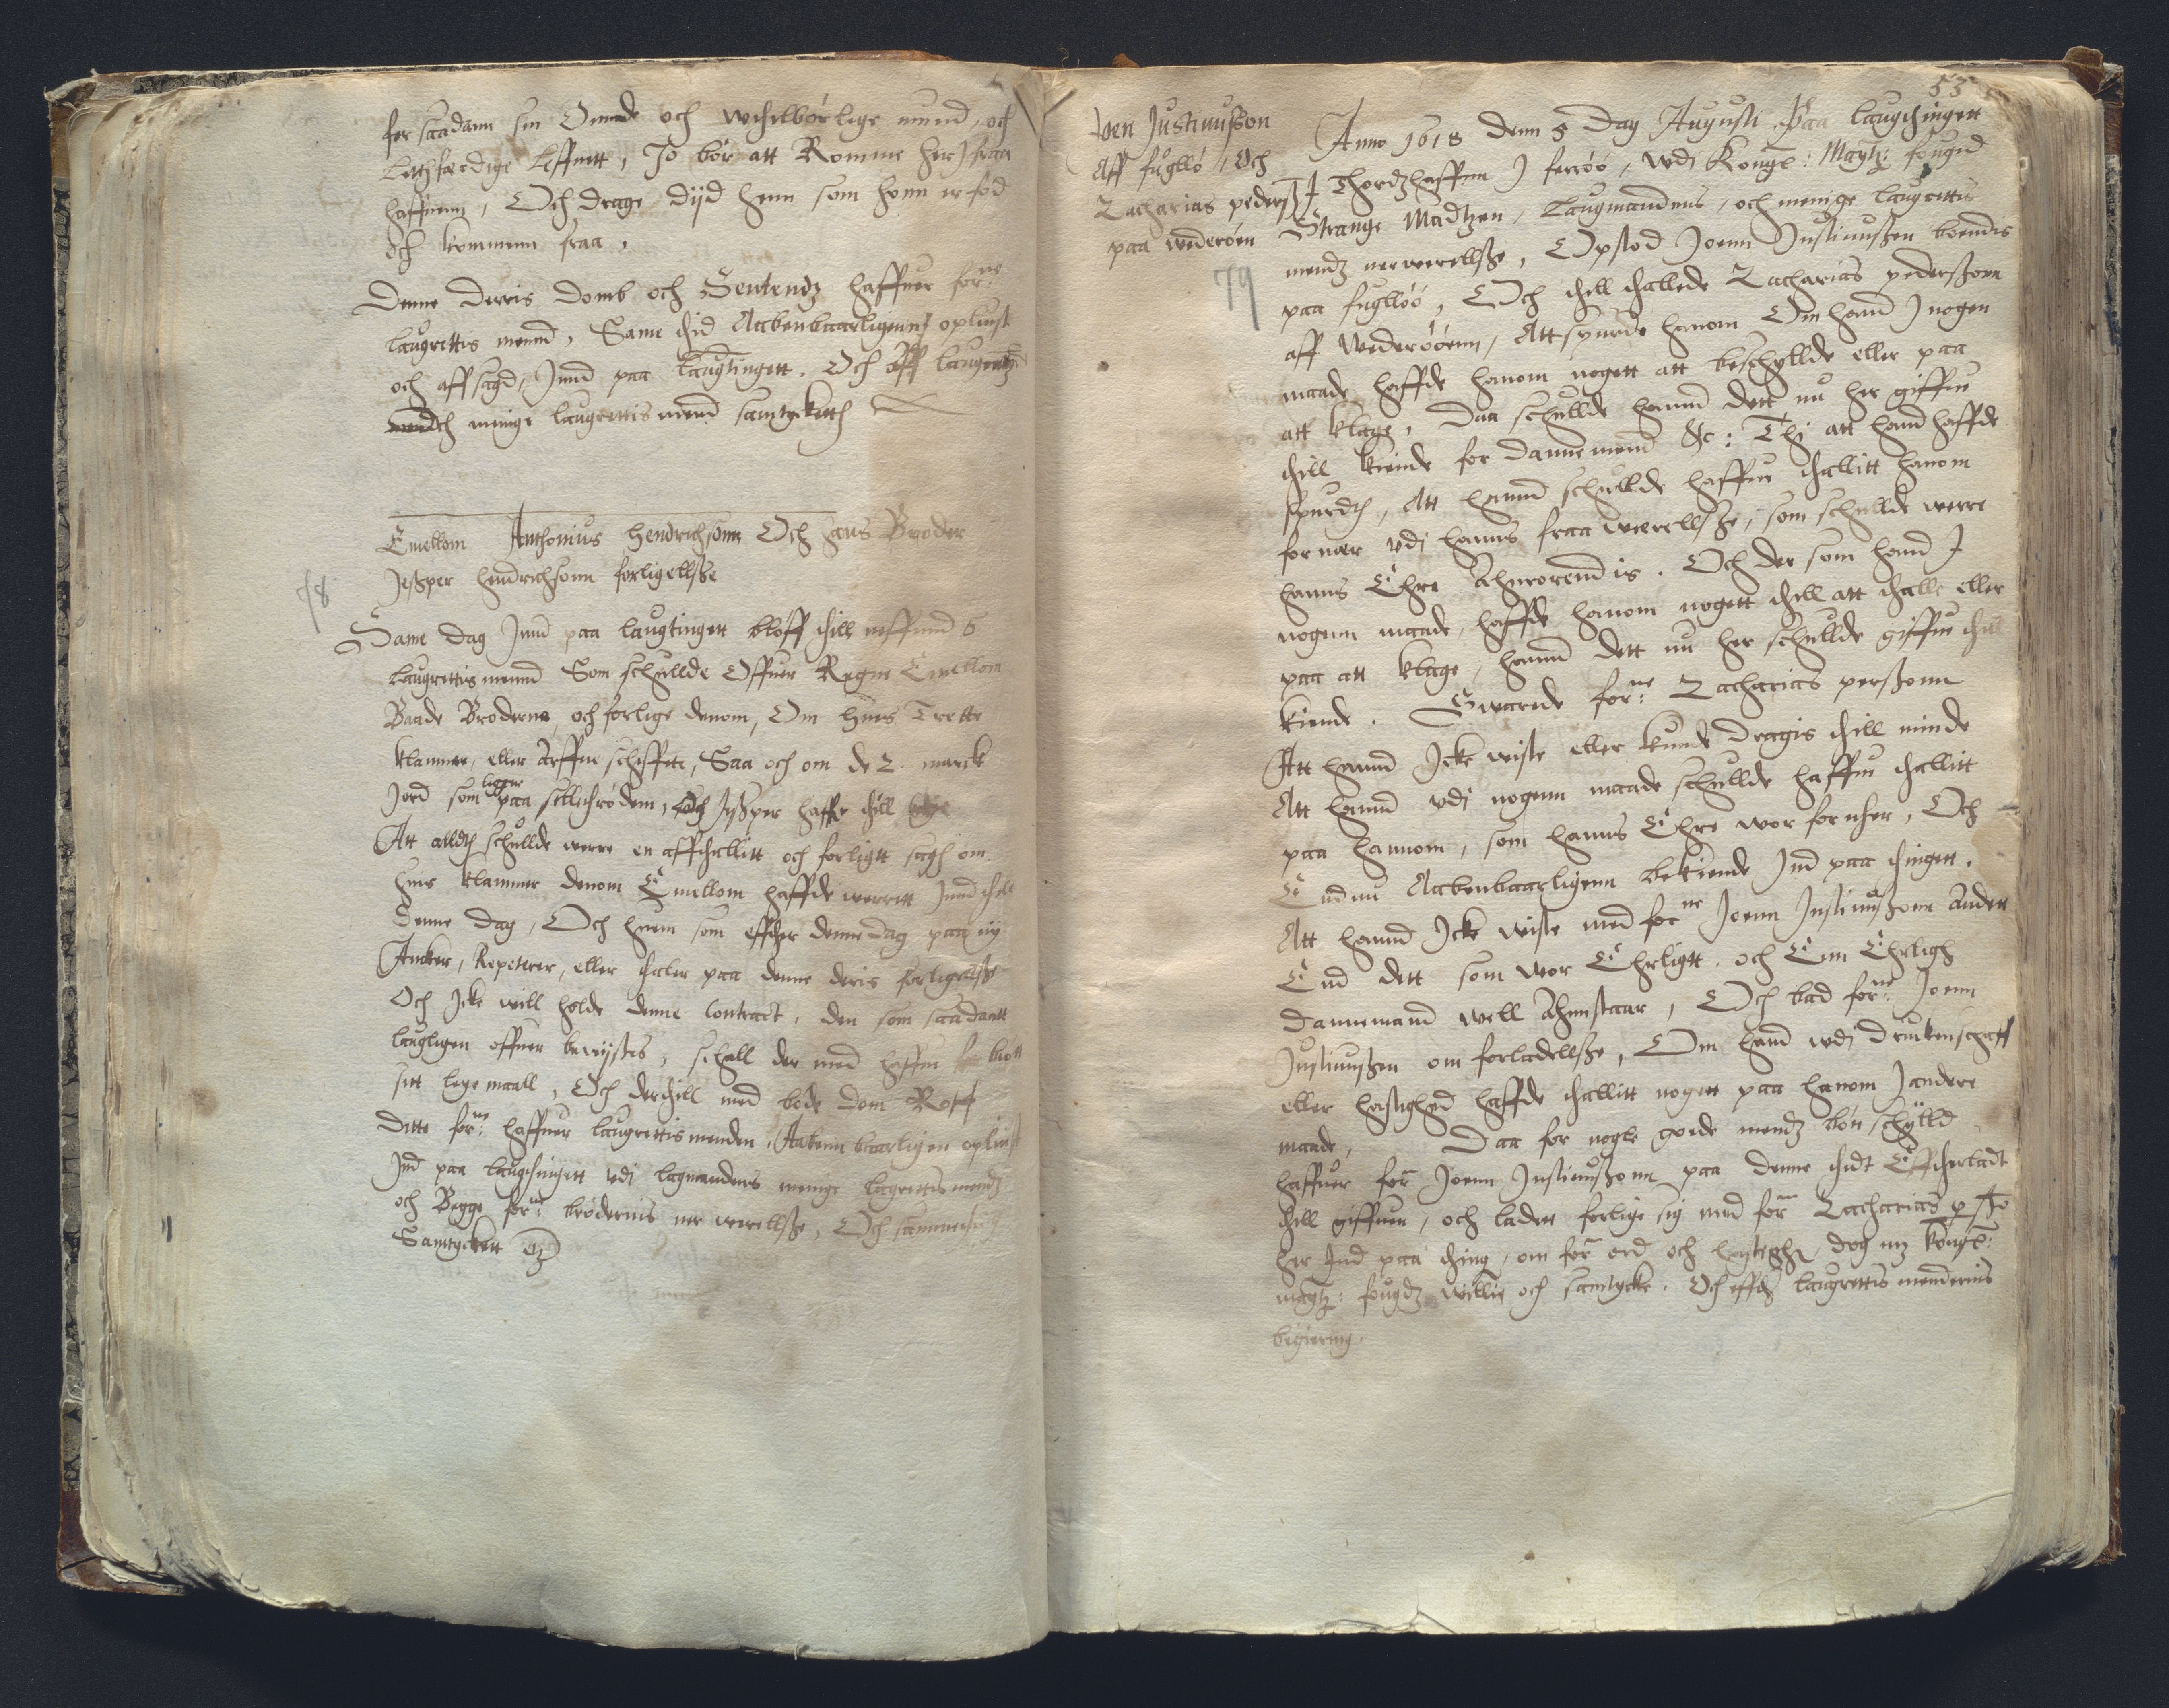 for saadann sin Onnde och wtilbørlige mund, och
Letfærdige Leffnett, Jo bør att Romme her J fraa
haffuenn, Och drage dijd henn som honn er fød
och kommenn fraa.
Denne derris domb och Sententz haffuer for:ne
laugrettis mennd, Same tid Aabenbaarligenn opliust
och affsagd, Innd paa Laugtingett. Och aff laugrettz
och menige laugrettis mend samtyckett
Emellom Anthonius Hendrichsonn Och hans Broder
Jesper Hendrichsonn forligellsse
78
Same dag Innd paa laugtingett bløff thill neffennd 6
laugrettis mennd Som schullde Offuer Regne Emellom
Baade Brøderne, och forlige denom, Om hues Trette
klammer, eller Arffue schiffte, Saa och om de 2. marck
Jord som ligger paa selletrødem, Och Jesper haffr thill
Att alldt schullde were en afftallitt och forligtt sag om
hues klammer denom Emellom haffde werrett Innd till
denne dag, Och huem som effther denne dag paa ny
Ancker, Repeterer, eller thaler paa denne deris forligelsse
Och Icke will holde denne Contract, den som saadantt
lauglligen offuer beuijsses, schall der med haffue brott
sitt lege maall, Och derthill med bøde dom Roff
Dette for:ne haffuer laugrettis menden Aabenn baarligen opliust
Ind paa laugthingett vdi lagmandens menige lagrettis mendz
och Begge for:ne brødernis ner werellsse, Och sammeledis
Samtyckett etz
53
Joen Justinusson
Aff fugllø, Och
Zacharias pederß:
paa wederøen
79
Anno 1618 denn 5 Dag Augusti Paa laugthingett
J Thordzhaffnn J ferrøø, wdj Konge: Maytz: fougid
Strange Madtzen, Laugmandens, och menige laugrettis
mendz nerwerellsse, Opstod Joenn Justinussen boendis
paa fugløø, Och thill thallede Zacharias pedersonn
aff Wederøøenn, Att spurde hanom Om hand J nogen
maade haffde hanom nogett att beschyllde eller paa
att klage, Daa schullde hannd dett nu her giffue
thill kiende for Dannemennd &c: Thj att hand haffde
spurdt, Att hannd schullde haffue thallitt hanom
for nær vdj hanns fraa werellsse, som schullde were
hanns Ehre Ahnrørendis. Och der som hand J
nogenn maade, haffde hanom nogett thill att thalle eller
paa att klage, hannd dett nu her schullde giffue thill
kiende. Swarede for:ne Zacharias personn
Att hannd Icke wiste eller kunde dragis thill minde
Att hannd vdj nogenn maade schullde haffue thallitt
paa hannom, som hanns Ehre wor for ner, Och
End nu Aabenbaarligenn bekiende Ind paa thingett,
Att hannd Icke wiste med for:ne Joenn Justinussonn Andett
End dett som wor Ehrligtt, och Enn Ehrligh
Dannemand well Ahnstaar, Och bad for:ne Joenn
Justinussen om forladellsse, Om hand wdj druckenschaff
eller hastighed haffde thallitt nogett paa hanom J andere
maade, Daa for nogle goede mendz bøn schylld
haffuer for: Joenn Justinussonn paa denne thidt Effterladt
thill giffuen, och ladett forlige sig med for: Zacharias p ßø
her Ind paa thing, om for: ord och hastighe, dog mz kongl:
maytz: fougdz willie och samtycke. Och effter laugrettis mendernis
begiering.